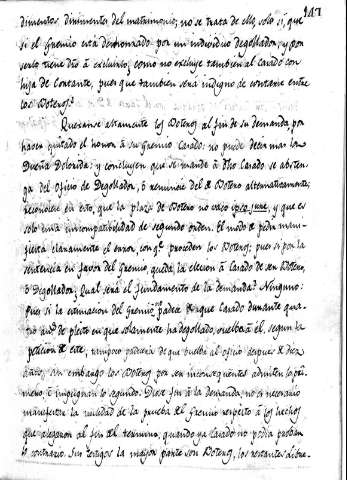 147
dimentos dirimentes del matrimonio; no se trata de ello, solo si, que
si el Gremio esta deshonrado por un individuo degollador, y por
serlo tiene dro á excluirlo, como no excluye tambien al Casado con
hija de Cortante, pues que tambien sera indigno de contarse entre
los Boteros?
Quexanse altamente los Boteros al fin de su demanda, por
haver quitado el honor á su Gremio Casado: no puede decir mas la
Dueña Dolorida: y concluyen que se mande á dho Casado se absten-
ga del Oficio de Degollador, ó renuncie del de Botero alternativamente;
reconocen en esto, que la plaza de Botero no vaco ipso jure, y que es
solo una incompatibilidad de segundo orden. El modo de pedir mani-
fiesta claramente el error, con q.e proceden los Boteros; pues si por la
sentencia en favor del Gremio, queda la eleccion á Casado de ser Botero,
ó Degollador, Qual será el fundamento de la demanda? Ninguno:
Pues si la estimacion del Gremio no padece porque Casado durante qua-
tro añ.s de pleito en que solamente ha degollado, vuelba á él, segun la
peticion de este, tampoco padeceria de que vuelba al oficio despues de diez
años; sin embargo los Boteros por ser inconsequentes admiten lo pri-
mero, é impugnan lo segundo. Dixe fin á la demanda, no si necesario
manifestar la nulidad de la prueba del Gremio respecto á los hechos
que alegaron al fin del termino, quando ya Casado no podia probar
lo contrario. Sus testigos la maior parte son Boteros, los restantes